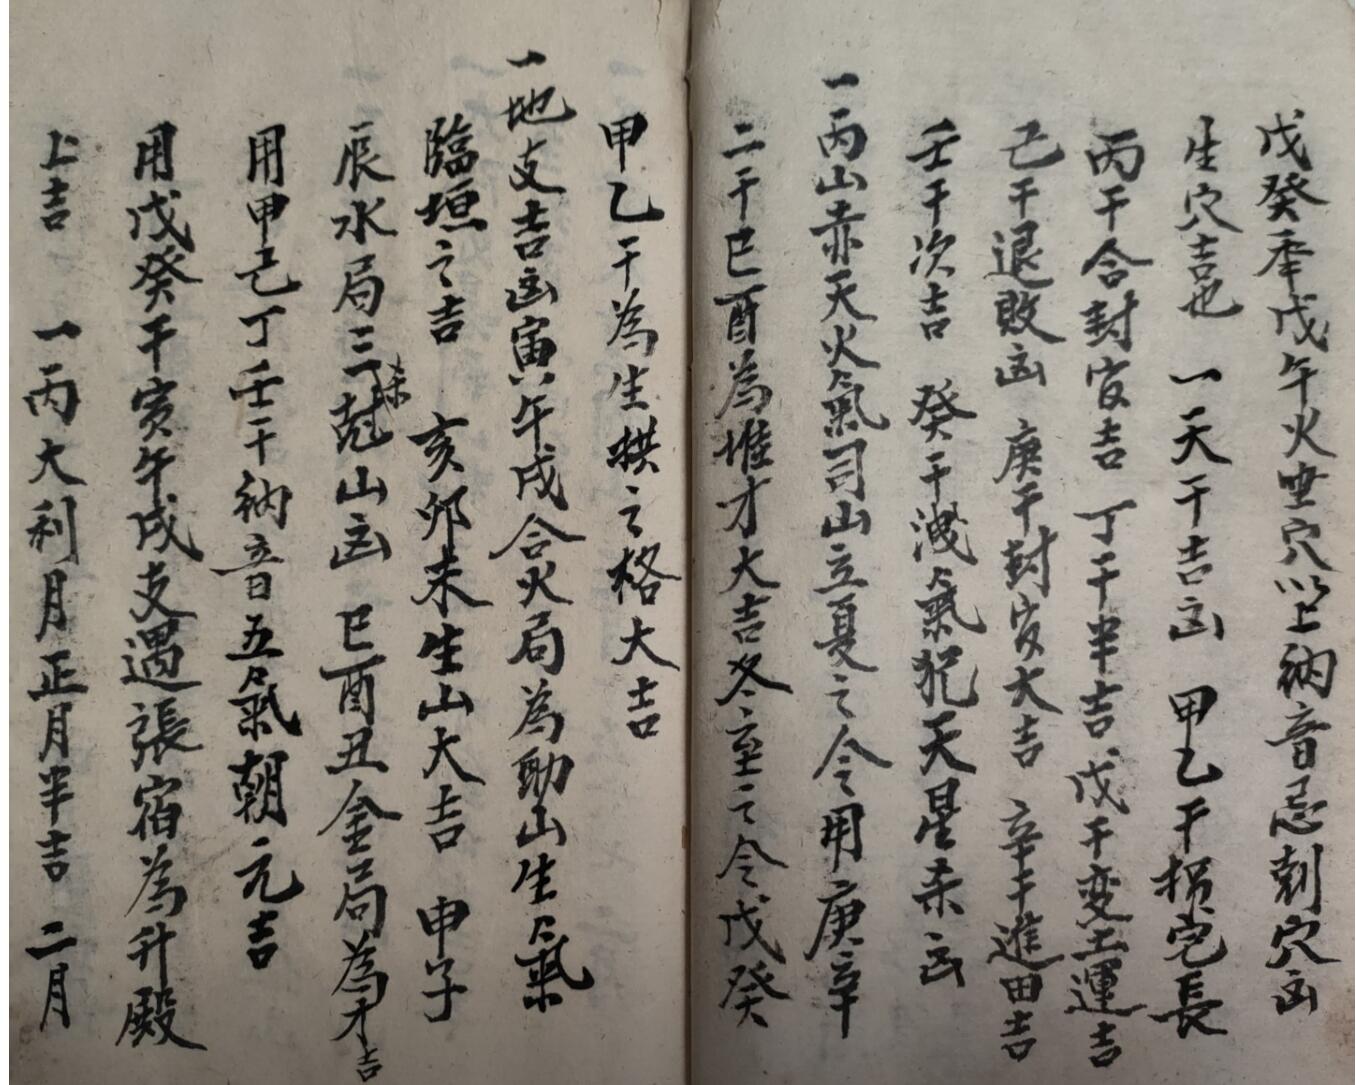 戊癸年戊午火坐穴以上納音忌剋穴凶
生穴吉也　一天干吉凶　甲乙干損宅長
丙干合封官吉　丁干半吉　戊干变土運吉
己干退敗凶　庚干封官大吉　辛干進田吉
壬干次吉　癸干洩氣犯天星杀凶
一丙山赤天火氣司山立夏之令用庚辛
二干巳酉為堆才大吉冬至之令戊癸
甲乙干為生拱之格大吉
一地支吉凶寅午戌合火局為助山生氣
臨垣之吉　亥卯未生山大吉　申子
辰水局三杀剋山凶　巳酉丑金局為才吉
用甲己丁壬干納音五氣朝元吉
用戊癸干寅午戌支遇張宿為升殿
上吉　一丙大利月正月半吉　二月